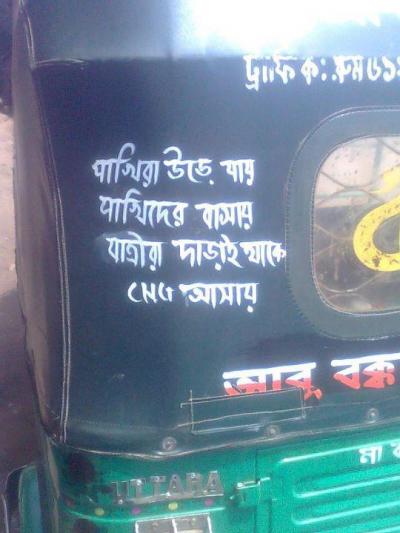 ট্রাফিক: রুম ৬১
পাখিরা উড়ে যায়
পাখিদের বাসায়
যাত্রীরা দাড়াই থাকে
CNG আসায়
আবু বক্ক
মা
UTTARA